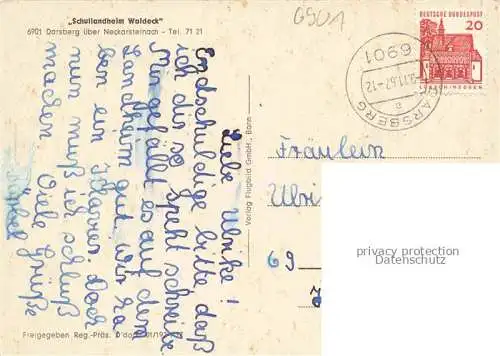 „Schullandheim Waldeck"
6901 Darsberg über Neckarsteinach - Tel. 71 21
6901
DEUTSCHE BUNDESPOST
20
LORSCH/HESSEN
6901
DARSBERG
Liebe Ulrike!
Endschuldige bitte daß
ich dir so speht schreibe
Mir gefällt es auf dem
Landheim gut wir ha
ben ein Klavier. Doch
nun muß ich schluß
machen Viele Grüße
Bärbel
Verlag Flugbild GmbH., Bonn
Fräulein
Ulri
69
privacy protection
Datenschutz
Freigegeben Reg.-Präs. D'dorf